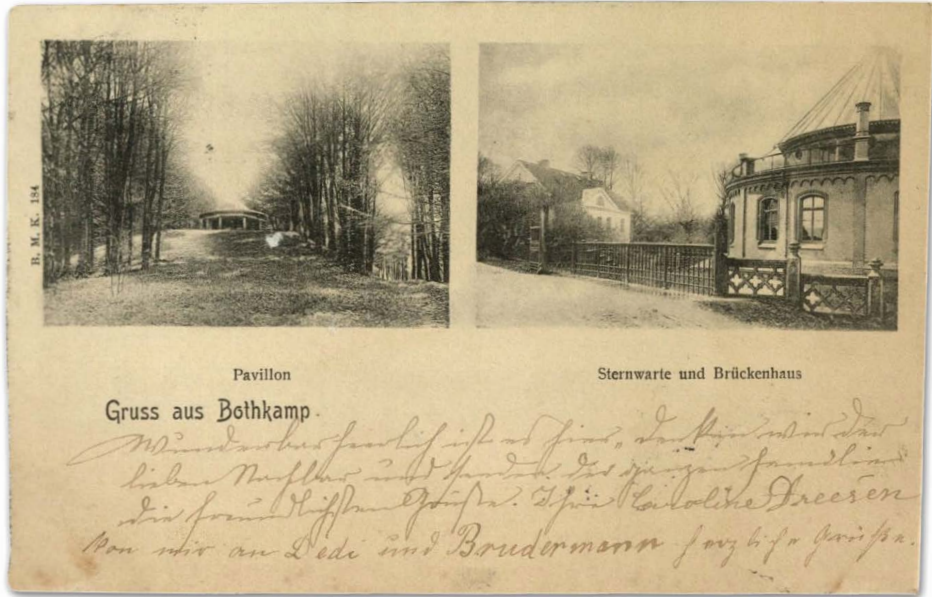 B. M. K. 184
Pavillon
Sternwarte und Brückenhaus
Gruss aus Bothkamp
Wunderbar herrlich ist es hier, denken wir der
lieben Nachbar und senden der ganzen Familie
die freundlichsten Grüße. Ihre Caroline Dreesen
Von mir an Dedi und Brudermann herzliche Grüße.